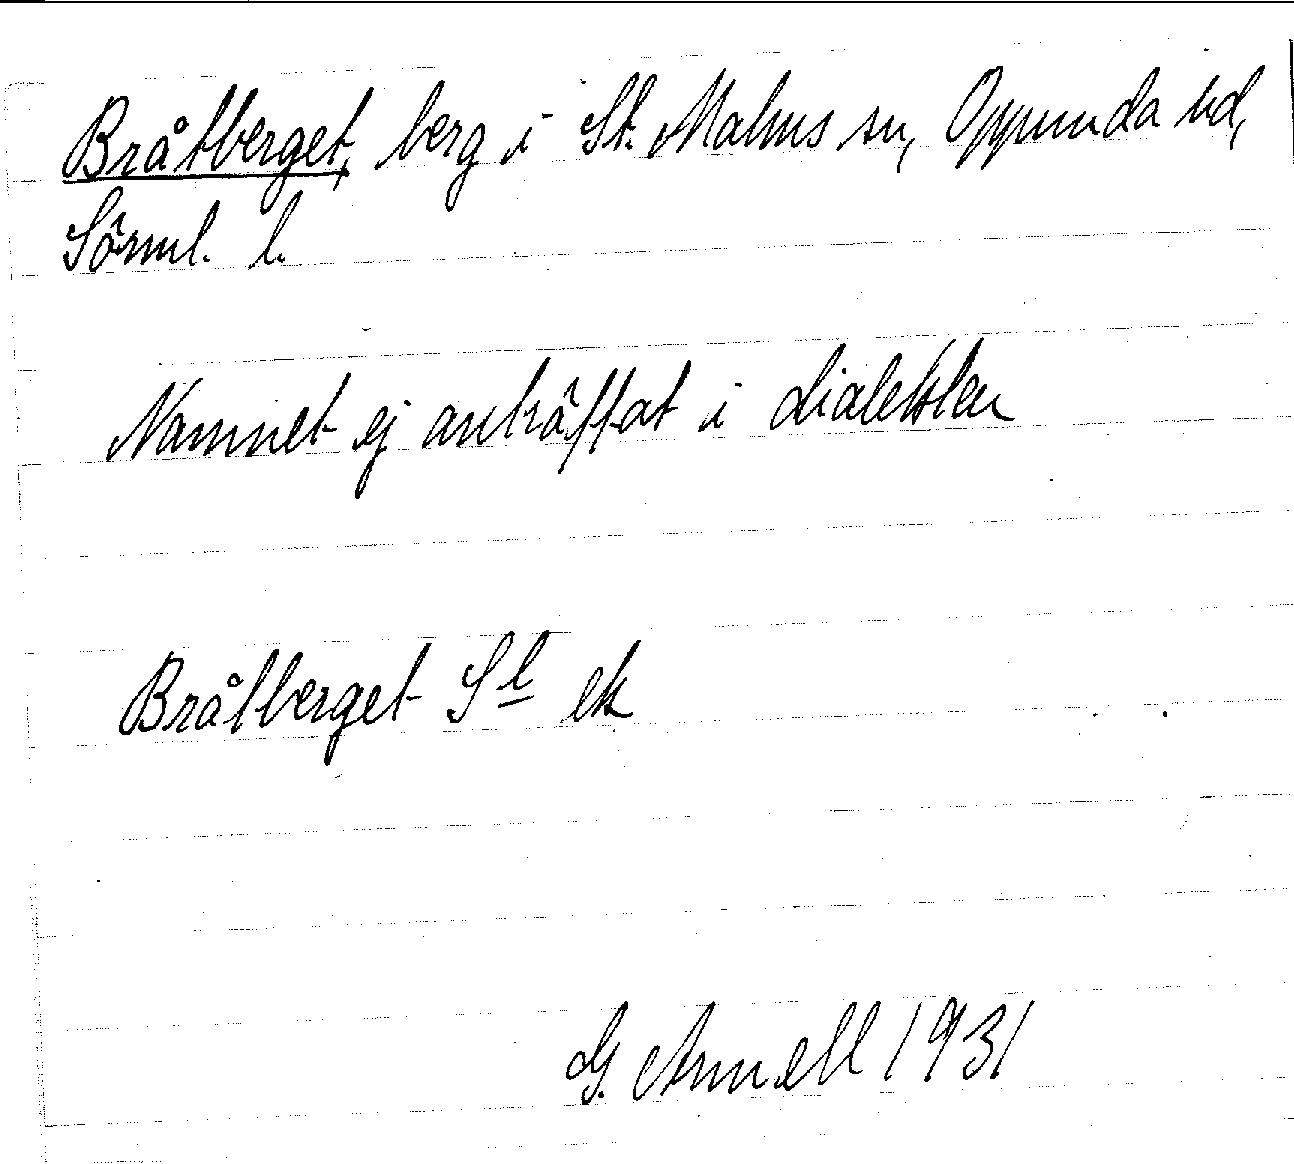 Bråtberget, berg i St. Malms sn, Oppunda hd,
Sörml. l.
Namnet ej anträffat i dialekten
Bråtberget St ek
G. Annell 1931